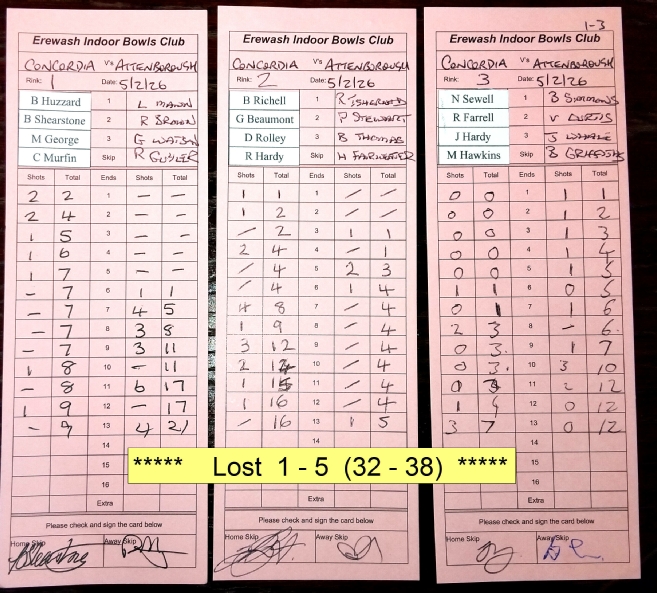 Erewash Indoor Bowls Club
CONCORDIA Vs ATTENBOROUGH
Rink: 1 Date: 5/2/26
B Huzzard 1 L MANN
B Shearstone 2 R BROWN
M George 3 G WATSON
C Murfin Skip R
Shots Total Ends Shots Total
2 2 1 - -
2 4 2 - -
1 5 3 - -
1 6 4 - -
1 7 5 - -
- 7 6 1 1
- 7 7 4 5
- 7 8 3 8
- 7 9 3 11
1 8 10 - 11
- 8 11 6 17
1 9 12 - 17
- 9 13 4 21
14
15
16
Extra
Please check and sign the card below
Home Skip Away Skip
Erewash Indoor Bowls Club
CONCORDIA Vs ATTENBOROUGH
Rink: 2 Date: 5/2/26
B Richell 1 R ISHERWOOD
G Beaumont 2 P STEWART
D Rolley 3 B THOMAS
R Hardy Skip H
Shots Total Ends Shots Total
1 1 1 / /
1 2 2 / /
/ 2 3 1 1
2 4 4 / 1
/ 4 5 2 3
/ 4 6 1 4
4 8 7 / 4
1 9 8 / 4
3 12 9 / 4
2 14 10 / 4
1 15 11 / 4
1 16 12 / 4
- 16 13 1 5
14
15
16
Extra
Please check and sign the card below
Home Skip Away Skip
1-3
Erewash Indoor Bowls Club
CONCORDIA Vs ATTENBOROUGH
Rink: 3 Date: 5/2/26
N Sewell 1 B SIMMONS
R Farrell 2 V CURTIS
J Hardy 3 J WHALE
M Hawkins Skip B GRIFFITHS
Shots Total Ends Shots Total
0 0 1 1 1
0 0 2 1 2
0 0 3 1 3
0 0 4 1 4
0 0 5 1 5
1 1 6 0 5
0 1 7 1 6
2 3 8 - 6
0 3 9 1 7
0 3 10 3 10
0 3 11 2 12
1 4 12 0 12
3 7 13 0 12
***** Lost 1 - 5 (32 - 38) *****
14
15
16
Extra
Please check and sign the card below
Home Skip Away Skip